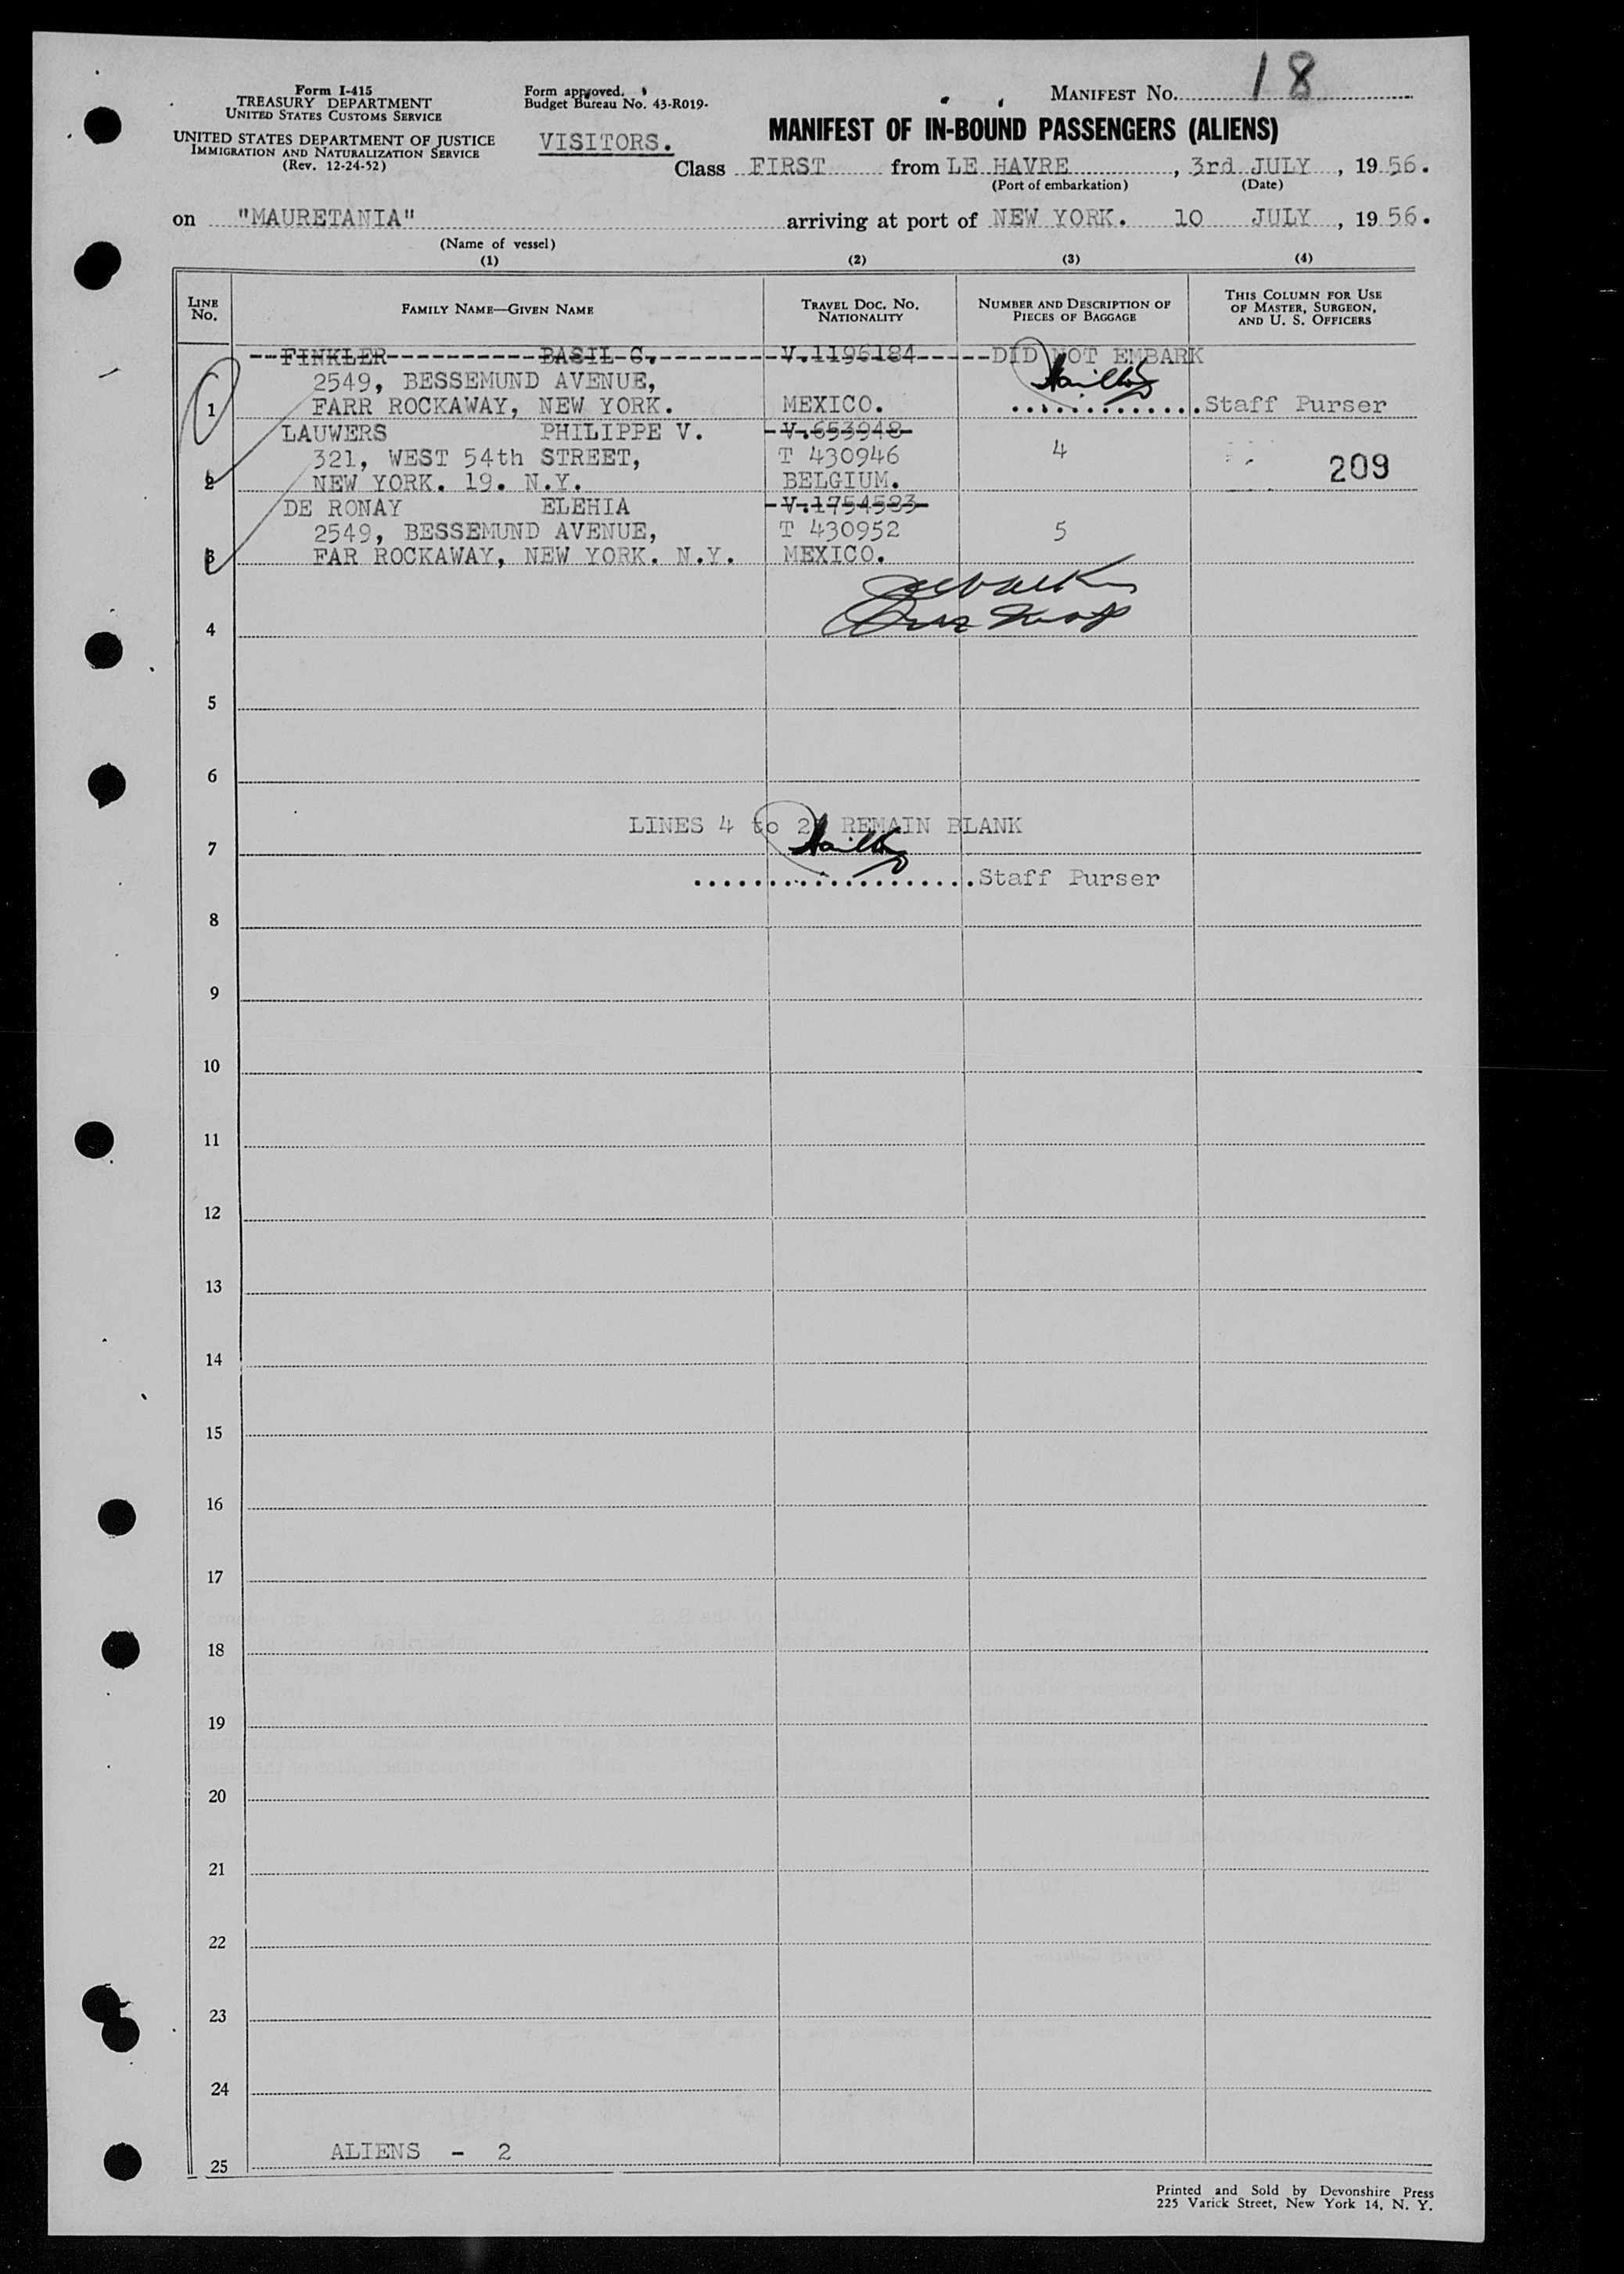 Form I-415
TREASURY DEPARTMENT
UNITED STATES CUSTOMS SERVICE
UNITED STATES DEPARTMENT OF JUSTICE
IMMIGRATION AND NATURALIZATION SERVICE
(Rev. 12-24-52)
Form approved.
Budget Bureau No. 43-R019-
VISITORS.
MANIFEST NO. 18
MANIFEST OF IN-BOUND PASSENGERS (ALIENS)
Class FIRST from LE HAVRE, 3rd JULY, 1956.
(Port of embarkation) (Date)
on "MAURETANIA" arriving at port of NEW YORK. 10 JULY, 1956.
(Name of vessel)
(1) (2) (3) (4)
LINE NO. FAMILY NAME—GIVEN NAME TRAVEL DOC. NO. NATIONALITY NUMBER AND DESCRIPTION OF PIECES OF BAGGAGE THIS COLUMN FOR USE OF MASTER, SURGEON, AND U. S. OFFICERS
--FINKLER----------BASIL G.--------V.1196184-----DID NOT EMBARK
2549, BESSEMUND AVENUE,
1 FARR ROCKAWAY, NEW YORK. MEXICO. .............Staff Purser
LAUWERS PHILIPPE V. -V.653948-
321, WEST 54th STREET, T 430946 4 209
2 NEW YORK. 19. N.Y. BELGIUM.
DE RONAY ELEHIA -V.1754583-
2549, BESSEMUND AVENUE, T 430952 5
3 FAR ROCKAWAY, NEW YORK. N.Y. MEXICO.
4
5
6
LINES 4 to 2 REMAIN BLANK
7
...................Staff Purser
8
9
10
11
12
13
14
15
16
17
18
19
20
21
22
23
24
ALIENS - 2
25
Printed and Sold by Devonshire Press
225 Varick Street, New York 14, N. Y.